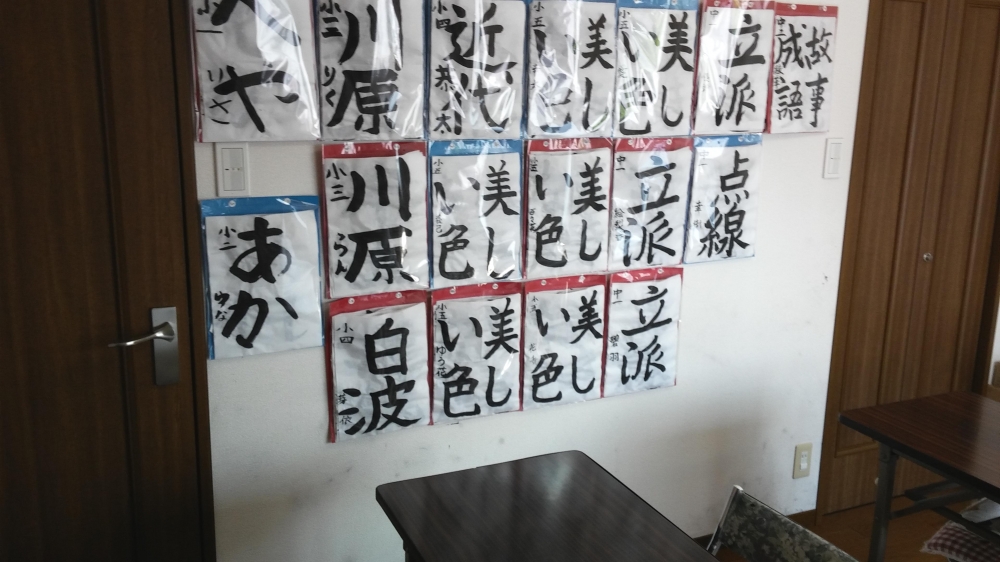 や
りさ
川原
小三 りく
近代
小四 恭太
美し
い色
小五
美し
い色
小五
立派
中一
故事
成語
中二
あか
小一 ゆな
川原
小三 らん
美し
い色
小五
美し
い色
小五
立派
中一
点線
中一
白波
小四
美し
い色
小五 ゆう花
美し
い色
小五
立派
中一